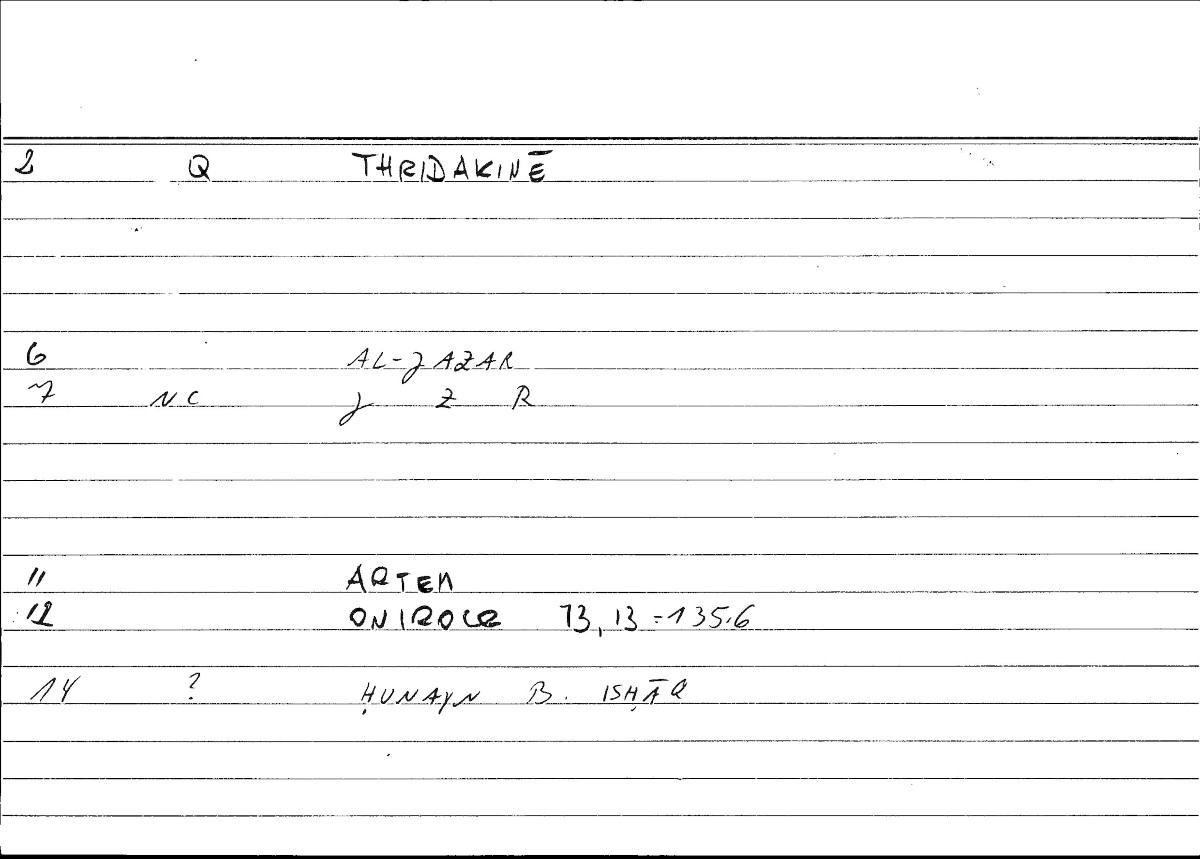 2 Q THRIDAKINĒ
6 AL-JAZAR
7 NC J Z R
11 ARTEM
12 ONIROCR 13,13 = 135.6
14 ? ḤUNAYN B. ISḤĀQ